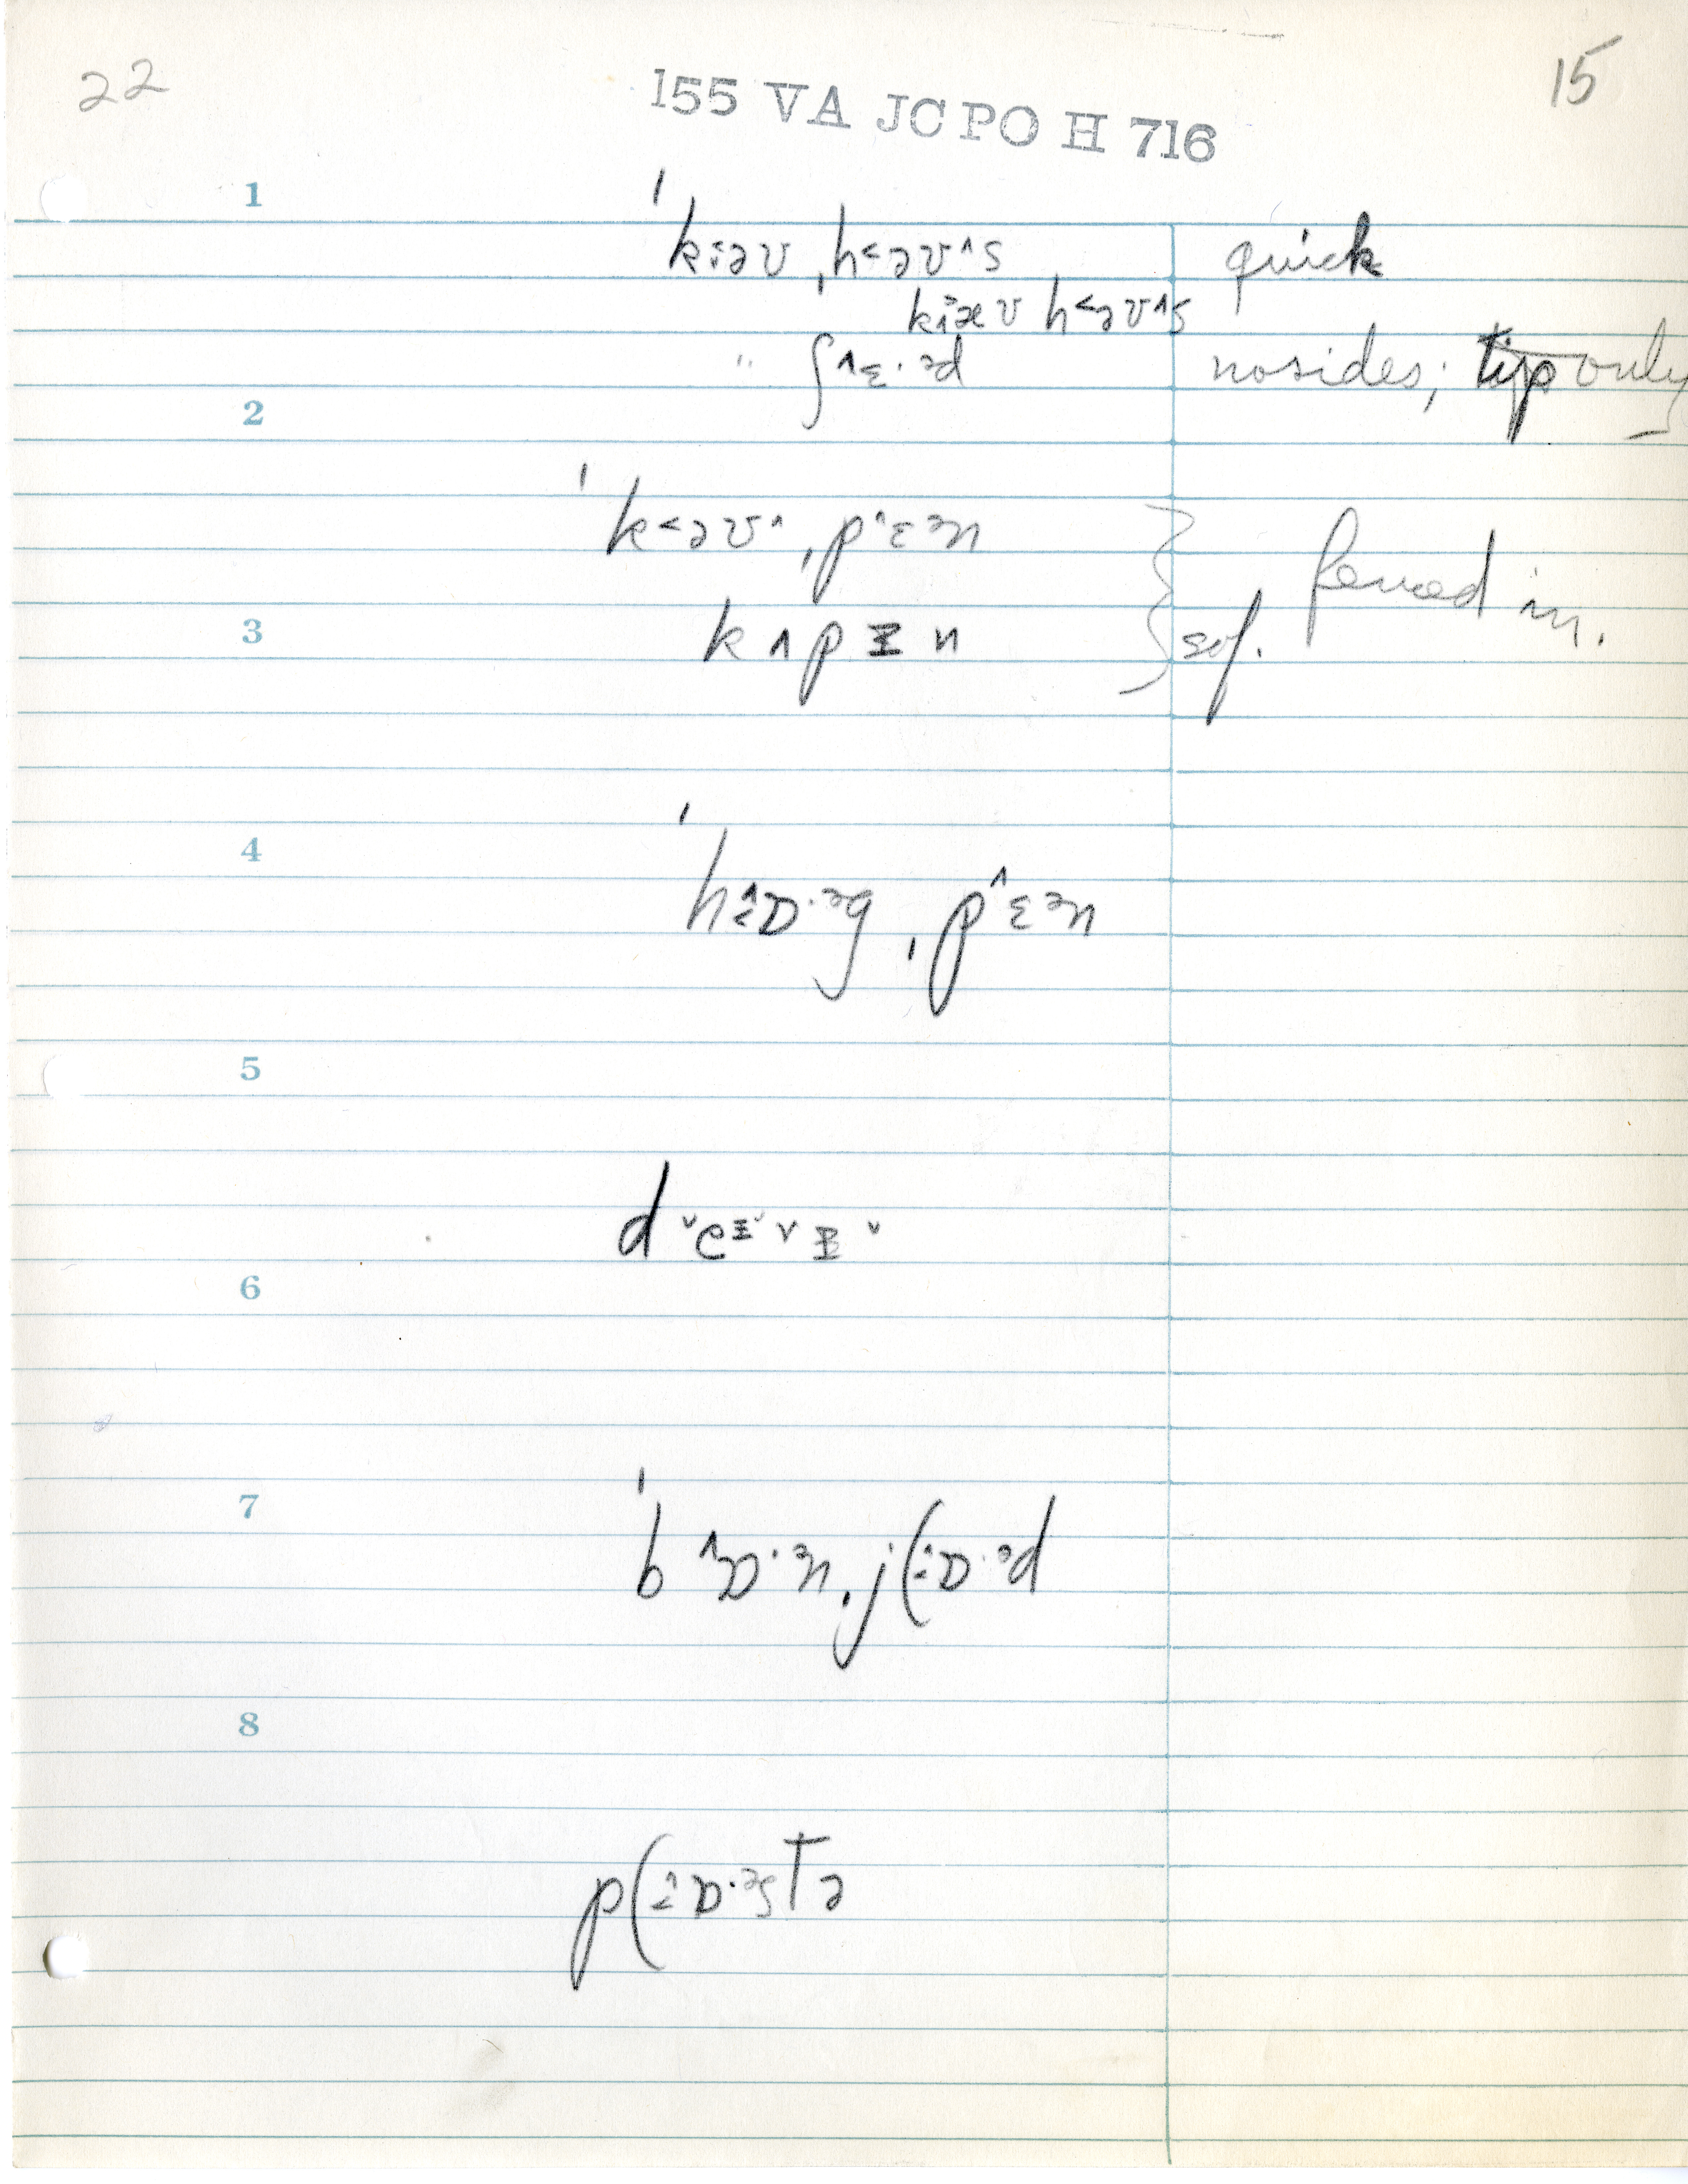 22
155 VA JC PO H 716
15
1
ˈk‹əʊ ˌh˂əʊ˄s quick
k‹æʊ h˂əʊ˄s
" ʃ˄ɛ·ᵊd no sides; tip only
2
ˈk˂əʊ˄ ˌp˄ɛᵊn
fenced in.
3
kʌpɪn
4
ˈh‹˄ɒ·ᵊg ˌp˄ɛᵊn
5
d˅eɪ˅vɪ˅
6
7
ˈb˄ɒ·ᵊn ˌj(‹˄ɒ·ᵊd
8
p(‹˄ɒ·ᵊsTə